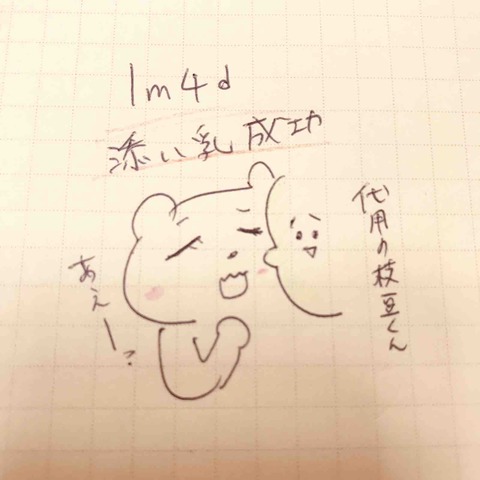 1m4d
添い乳成功
代用の枝豆くん
あえー?